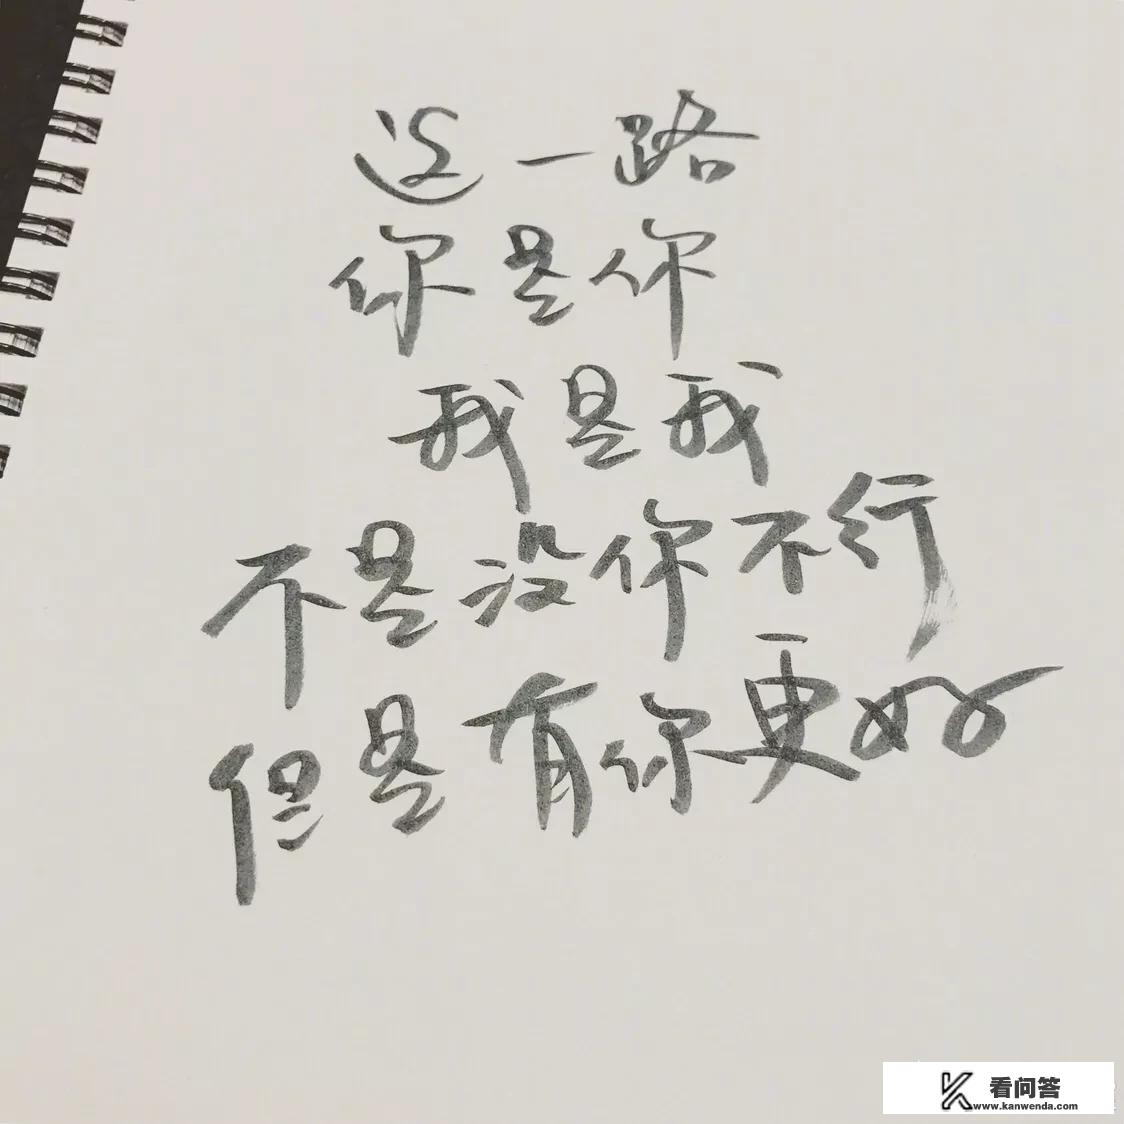 这一路
你是你
我是我
不是没你不行
但是有你更好
看问答
www.kanwenda.com